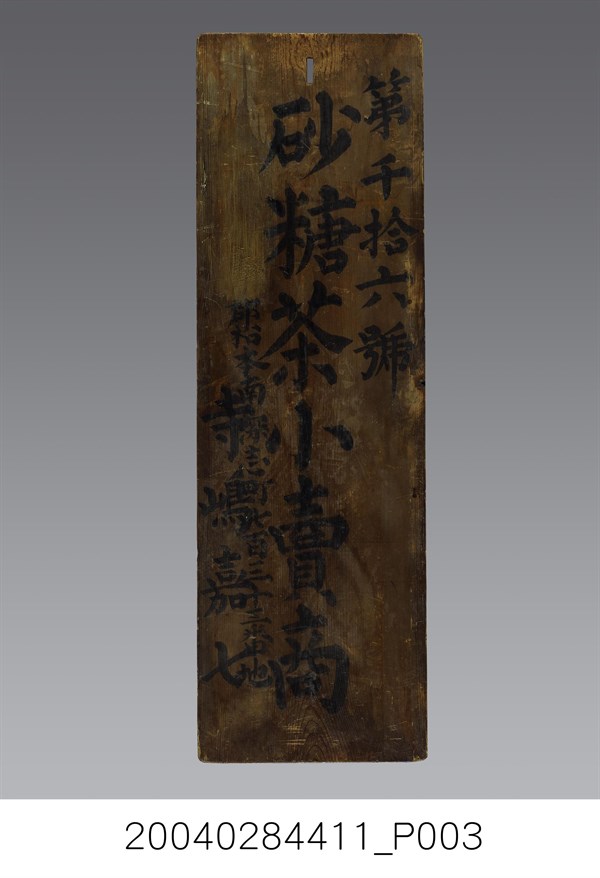 第千拾六號
砂糖茶小賣商
南 町 百三十三番地
寺嶋嘉七
20040284411_P003